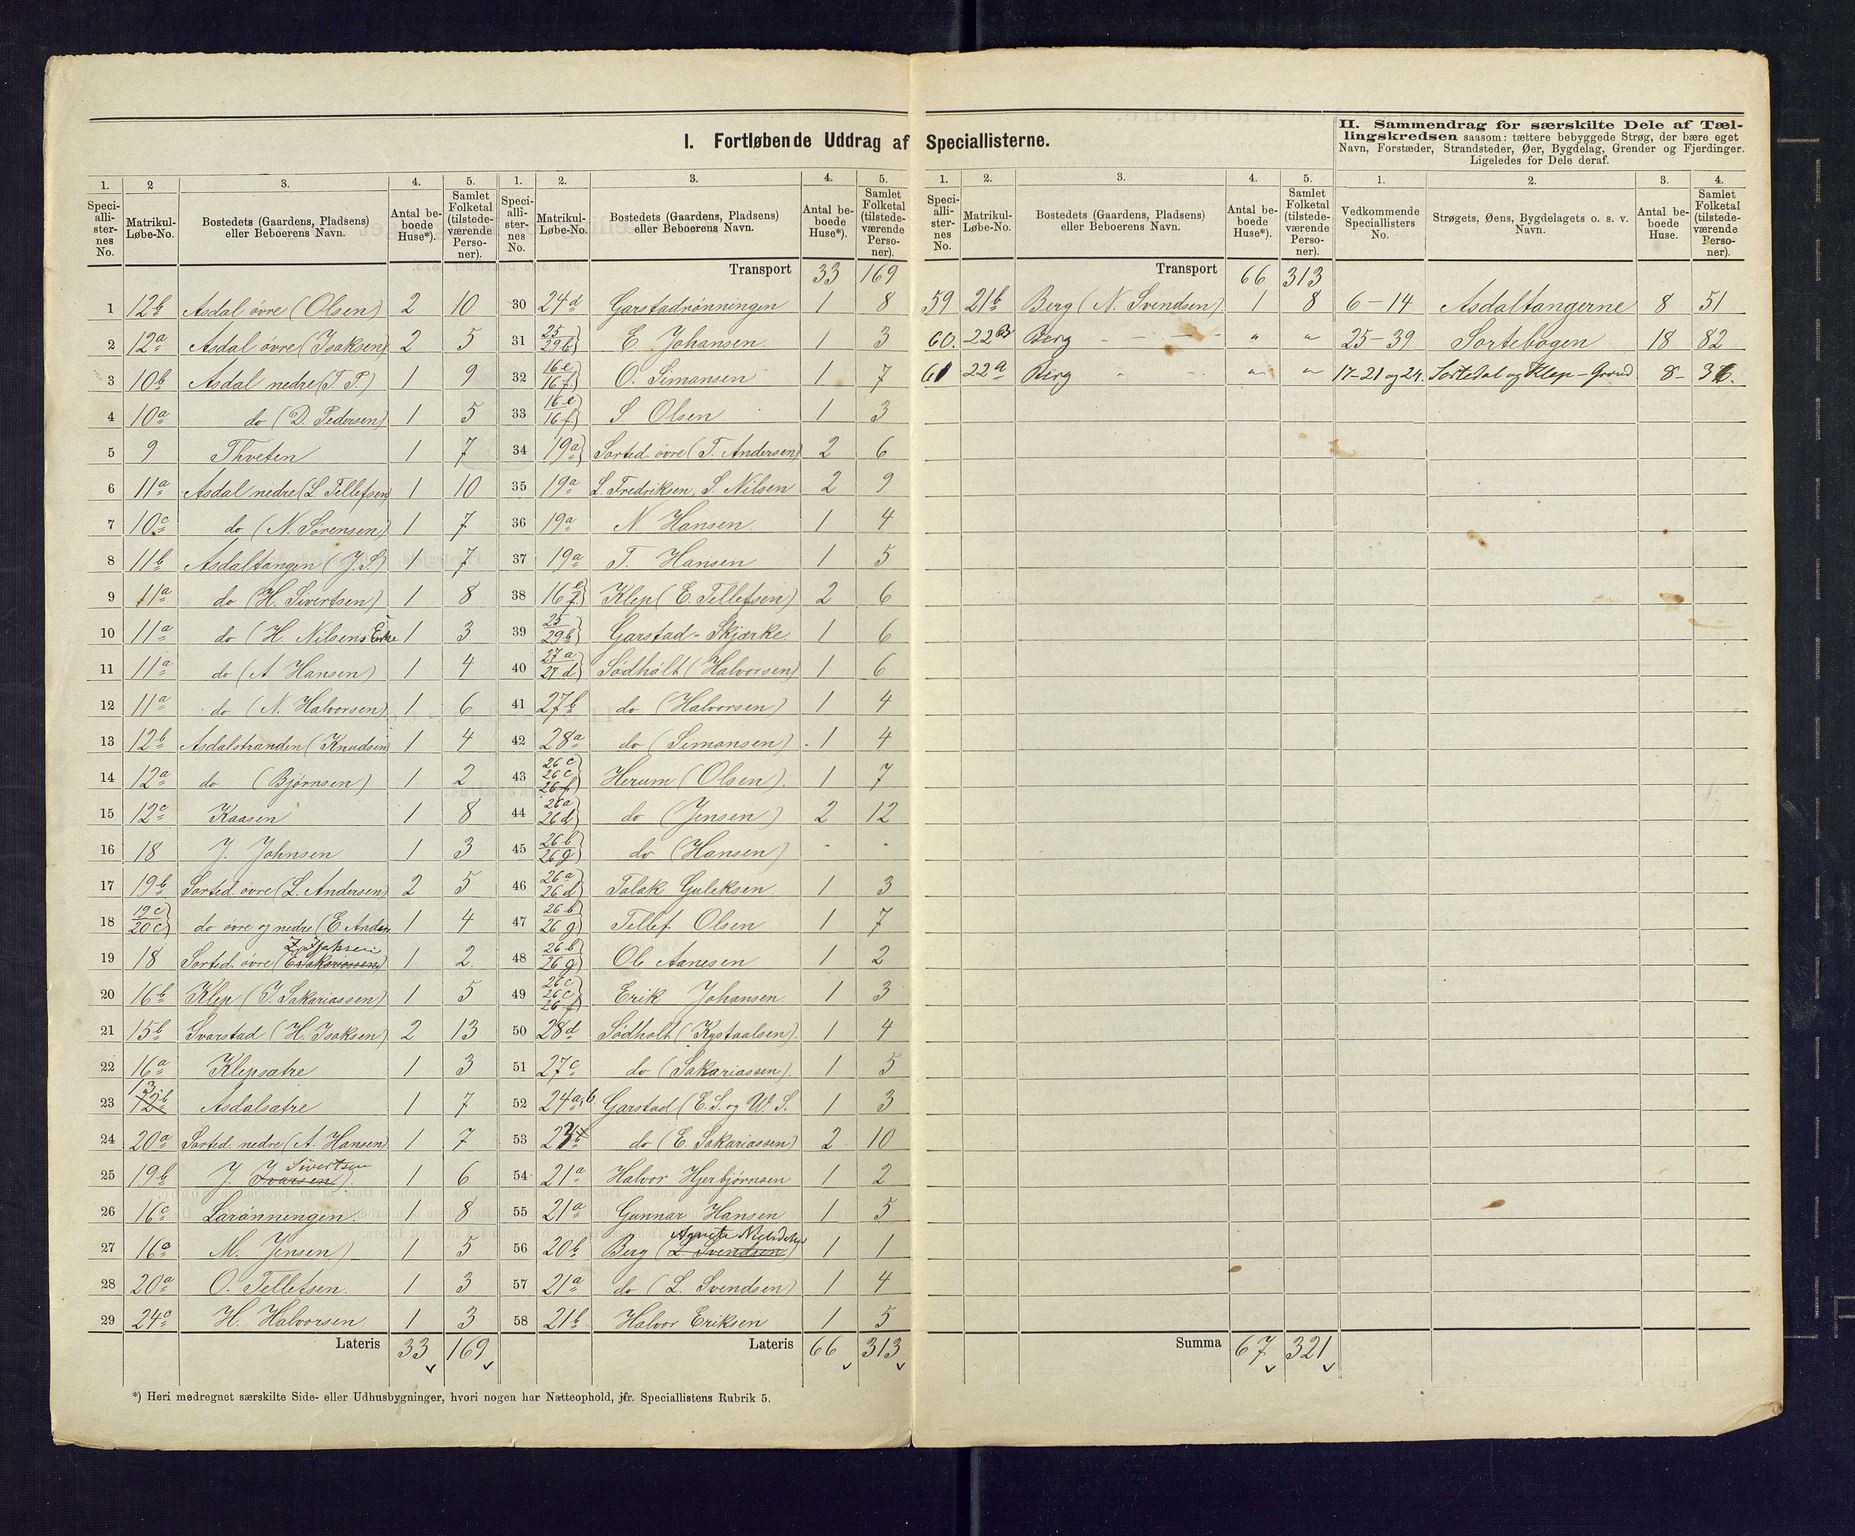 I. Fortløbende Uddrag af Speciallisterne.
II. Sammendrag for særskilte Dele af Tællingskredsen saasom: tættere bebyggede Strøg, der bære eget
Navn, Forstæder, Strandsteder, Øer, Bygdelag, Grender og Fjerdinger.
Ligeledes for Dele deraf.
1. 2 3. 4. 5.
Speciallisternes No. Matrikul-Løbe-No. Bostedets (Gaardens, Pladsens) eller Beboerens Navn. Antal beboede Huse*). Samlet Folketal (tilstedeværende Personer).
1 12b Asdal øvre (Olsen) 2 10
2 12a Asdal øvre (Isaksen) 2 5
3 10b Asdal nedre (T. P.) 1 9
4 10a do (D. Pedersen) 1 5
5 9 Thveten 1 7
6 11a Asdal nedre (L. Tellefsen) 1 10
7 10c do (N. Sørensen) 1 7
8 11b Asdaltangen (J. S.) 1 7
9 11a do (H. Sivertsen) 1 8
10 11a do (H. Nilsens Enke 1 3
11 11a do (A Hansen) 1 4
12 11a do (N. Halvorsen) 1 6
13 12b Asdalstranden (Knudsen) 1 4
14 12a do (Bjørnsen) 1 2
15 12c Kaasen 1 8
16 18 J. Johnsen 1 3
17 19b Sorted. øvre (L. Andersen) 2 5
18 19c 20c do øvre og nedre (E. Anders 1 4
19 18 Sorted. øvre (Isaksen 1 2
20 16b Klep (T. Sakariassen) 1 5
21 15b Svarstad (H. Isaksen) 2 13
22 16a Klepsætre 1 3
23 13 b Asdalsætre 1 7
24 20a Sorted. nedre (A. Hansen) 1 7
25 19b J. Sivertsen Ivarsen). 1 6
26 16cЛарønningen. 1 8
27 16a M. Jensen) 1 5
28 20a O. Tellefsen. 1 3
29 24c H. Halvorsen 1 3
Lateris 33 169
*) Heri medregnet særskilte Side- eller Udhusbygninger, hvori nogen har Natteophold, jfr. Speciallistens Rubrik 5.
1. 2. 3. 4. 5.
Speciallisternes No. Matrikul-Løbe-No. Bostedets (Gaardens, Pladsens) eller Beboerens Navn. Antal beboede Huse*). Samlet Folketal (tilstedeværende Personer).
Transport 33 169
30 24d Garstadrønningen 1 8
31 25 29b) E. Johansen. 1 3
32 16e 16f) O. Simonsen 1 7
33 16e 16f) S Olsen 1 3
34 19a) Sorted. øvre (T. Andersen) 2 6
35 19a L. Fredriksen, S. Nilsen 2 9
36 19a N Hansen. 1 4
37 19a T. Hansen 1 5
38 16 e f) Klep (E. Tellefsen) 2 6
39 25 29b) Garstad-Skjærke 1 6
40 27a 27d) Sødholt (Halvorsen) 1 6
41 27b do (Halvorsen) 1 4
42 28a do (Simonsen) 1 4
43 26c 26c 26f) Herum (Olsen). 1 7
44 26a 26d) do (Jensen) 2 12
45 26b 26g) do (Hansen) . .
46 26a 26d) Talak Guleksen 1 3
47 26b 26g) Tellef Olsen 1 7
48 26b 26g) Ole Aanesen 1 2
49 26c 26c 26f Erik Johansen. 1 3
50 28d Sødholt (Kystaalsen). 1 4
51 27c do (Sakariassen). 1 5
52 24a,b. Garstad (E. S. og W. S. 1 3
53 23 do (E. Sakariassen) 2 10
54 21a Halvor Herbjørnsen 1 2
55 21a Gunnar Hansen 1 5
56 20b Berg (L Svendsen) 1 1
57 21a do (L. Svendsen) 1 4
58 21b Halvor Eriksen 1 5
Lateris 66 313
1. 2. 3. 4. 5.
Speciallisternes No. Matrikul-Løbe-No. Bostedets (Gaardens, Pladsens) eller Beboerens Navn. Antal beboede Huse*). Samlet Folketal (tilstedeværende Personer).
Transport 66 313
59 21b Berg (N. Svendsen). 1 8
60. 22B Berg - - - " "
61 22a Berg " - - " "
Summa 67 321
1. 2. 3. 4.
Vedkommende Speciallisters No. Strøgets, Øens, Bygdelagets o. s. v. Navn. Antal beboede Huse. Samlet Folketal (tilstedeværende Personer).
6-14 Asdaltangerne 8 51
25-39 Sortebogen 18 82
17-21 og 24. Sortedal og Klep-Grund 8 36